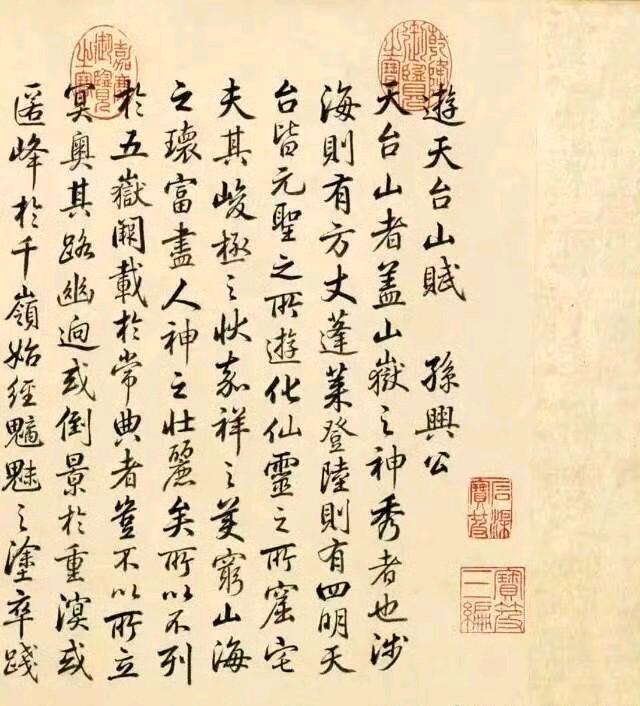 遊天台山賦 孫興公
天台山者蓋山嶽之神秀者也涉
海則有方丈蓬萊登陸則有四明天
台皆元聖之所遊化仙靈之所窟宅
夫其峻極之狀嘉祥之美窮山海
之瓌富盡人神之壯麗矣所以不列
於五嶽闕載於常典者豈不以所立
冥奧其路幽迥或倒景於重溟或
匿峰於千嶺始經魑魅之塗卒踐
乾隆御覽之寶
嘉慶御覽之寶
石渠寶笈
寶笈三編